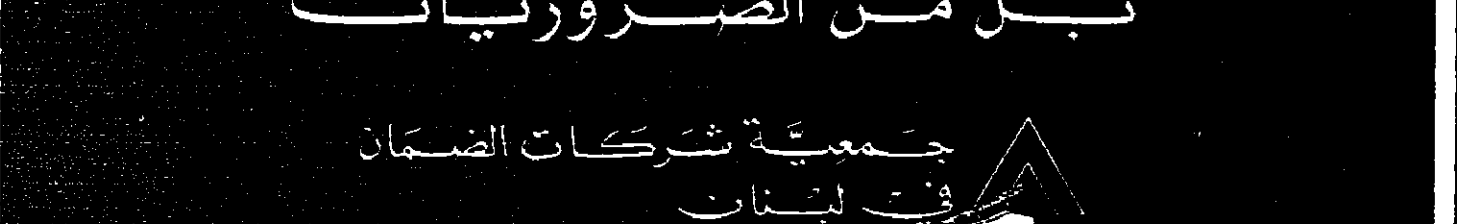 بل من الضروريات
جَمعِيَّة شَركات الضمَان
في لبنان